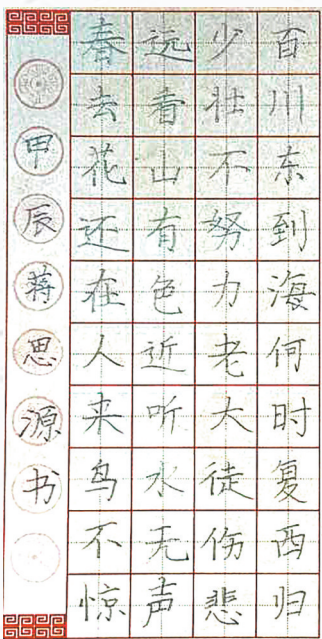 百川东到海何时复西归
少壮不努力老大徒伤悲
远看山有色近听水无声
春去花还在人来鸟不惊
甲辰蒋思源书